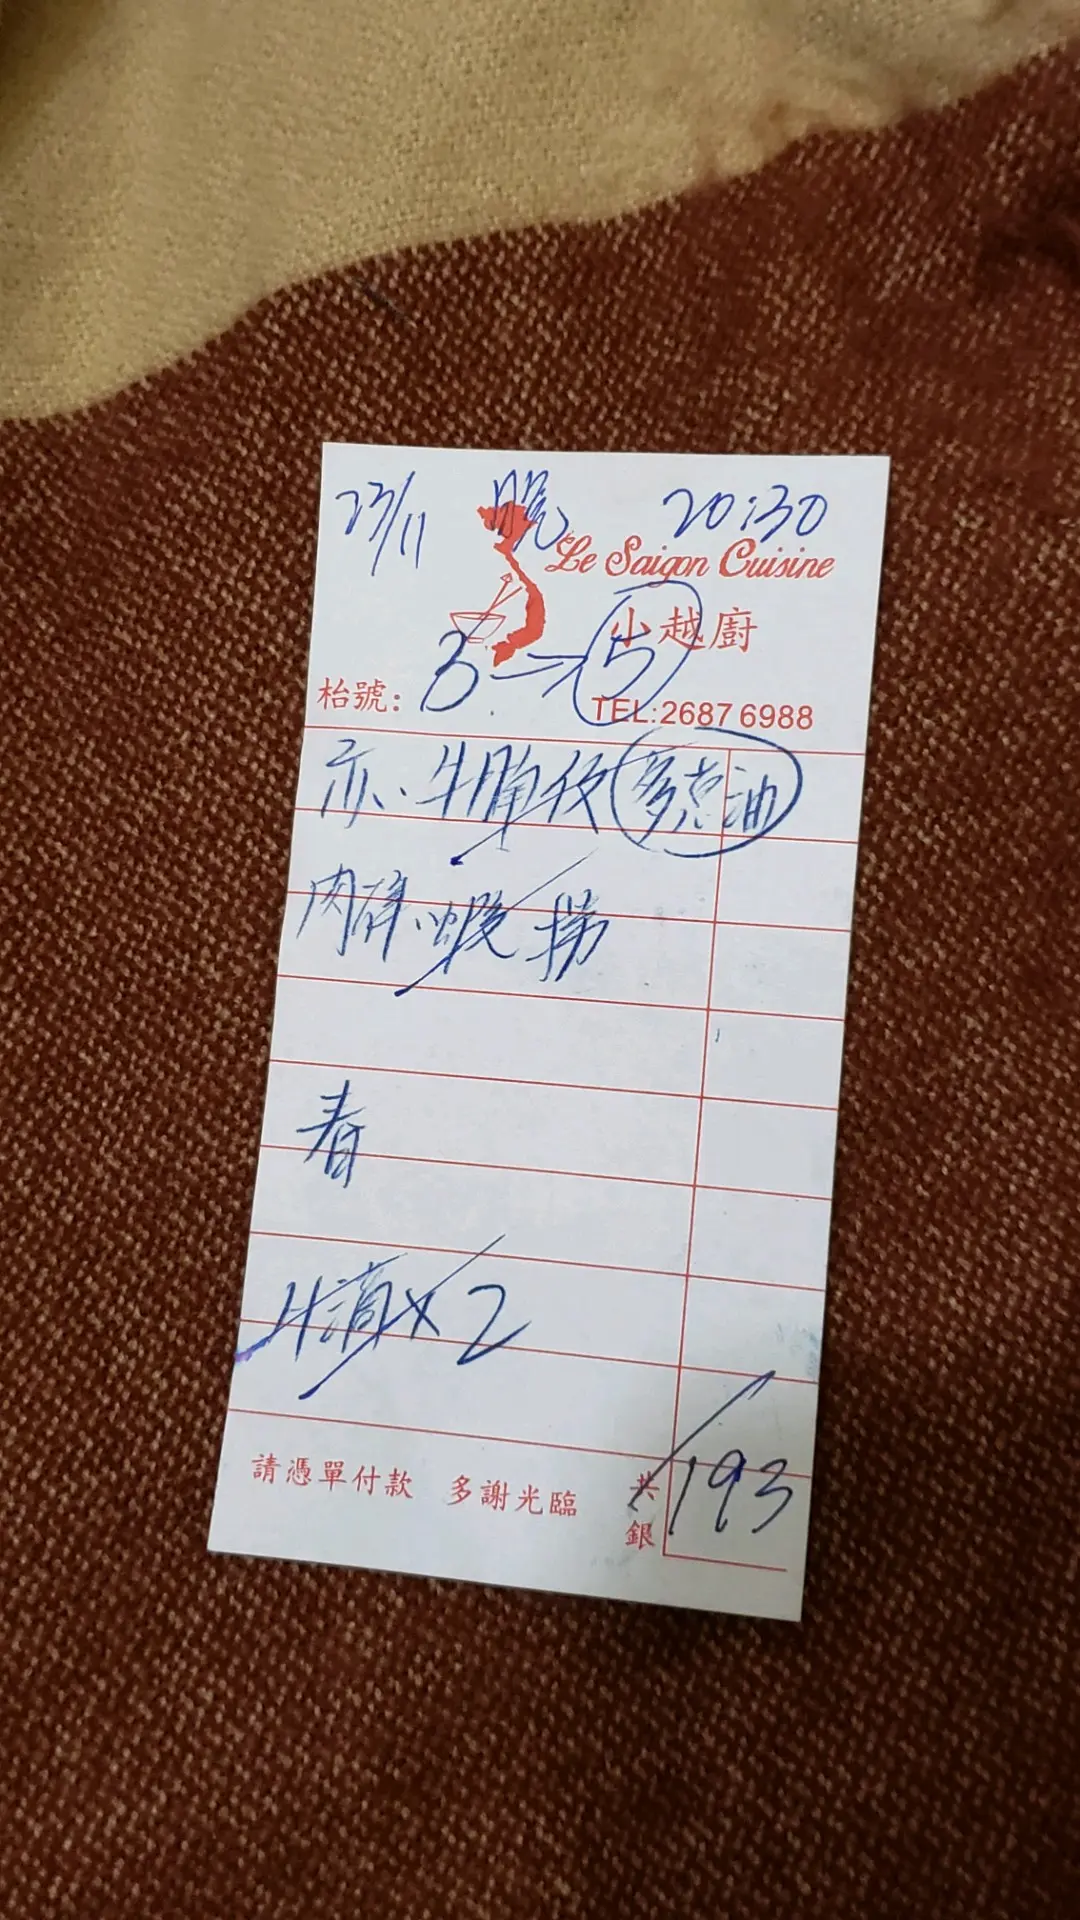 23/11 晚 20:30
Le Saigon Cuisine
小越廚
枱號: 3→5
TEL:2687 6988
牛腩 多油
肉碎 蝦 捞
春
滴×2
請憑單付款 多謝光臨 共銀 193